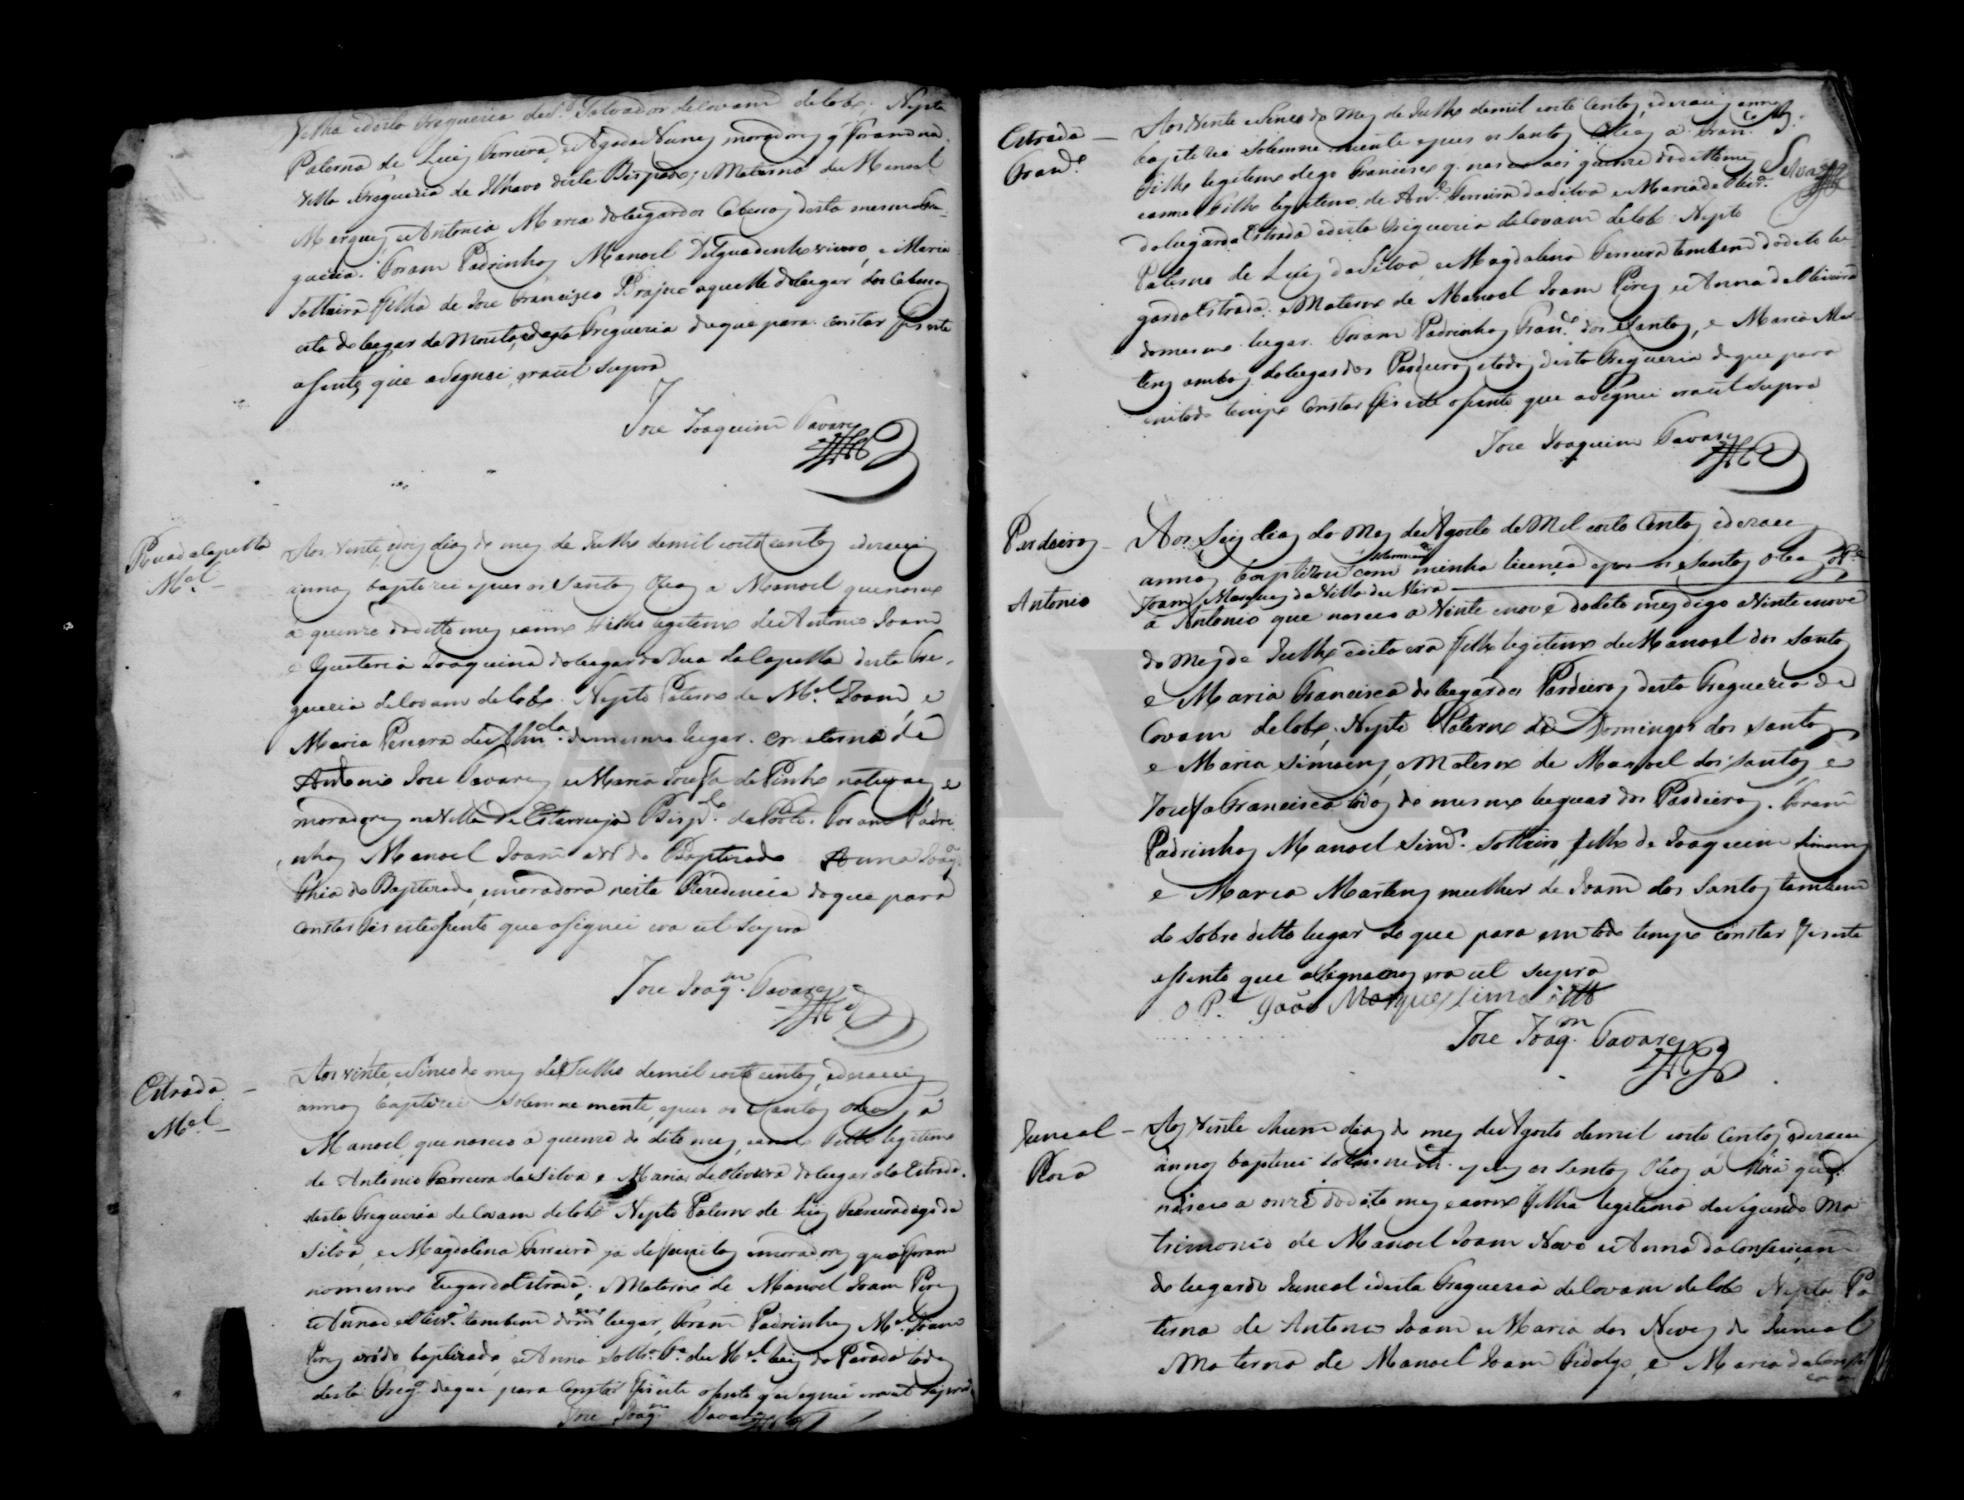 Velha e desta Freguesia de S. Salvador de Covam do Lobo; Nepta
Paterna de Luiz Ferreira, e Agada Nunes moradores q foram na
Villa Freguesia de Ilhavo deste Bispado; Materna de Manoel
Marques e Antonia Maria do lugar dos Cabeços desta mesma Fre-
guezia. Foram Padrinhos Manoel viuvo, e Maria
Solteira filha de Joze Francisco aquelle do lugar dos Cabeços
esta do lugar da Moita, desta Freguezia de que para constar fis este
assento, que asignei era ut supra
Joze Joaquim Tavares
Rua da Capella
M.el
Aos vinte, e dois dias do mez de Julho de mil oito centos e dezaseis
annos baptizei e puz os Santos Oleos a Manoel que nasceo
a quinze do ditto mez e anno filho legitimo de Antonio Joam
e Quiteria Joaquina do lugar da Rua da Capella desta Fre-
guezia de Covam do Lobo. Nepto Paterno de M.el Joam, e
Maria Pereira de Alm.da do mesmo lugar. Materno de
Antonio Joze Tavares e Maria Josefa de Pinho naturaes e
moradores na Villa de Estarreja Bisp.do do Porto. Foram Padri-
nhos Manoel Joam avô do Baptizado Anna Joaq.a
thia do Baptizado, e moradora nesta Rezidencia do que para
constar fis este assento que assignei era ut supra
Joze Joaq.m Tavares
Estrada
M.el
Aos vinte, e sinco do mez de Julho de mil oito centos, e dezaseis
annos baptizei solemne mente, e puz os Santos Oleos, a
Manoel, que nasceo a quinze do dito mez, e anno Filho legitimo
de Antonio Ferreira da Silva e Maria de Oliveira do lugar da Estrada
desta Freguezia de Covam do Lobo Nepto Paterno de Luiz Ferreira digo da
Silva, e Magdalena Ferreira já defunctos moradores que foram
no mesmo lugar da Estrada; Materno de Manoel Joam Pires
e Anna de Oliv.ra tambem do m.mo lugar, foram Padrinhos M.el Joam
Pires avô do baptizado, e Anna Solt.ra f.a de M.el Luiz da Parada todos
desta Freg.a de que para constar fis este assento q asignei era ut supra
Joze Joaq.m Tavares
Estrada
Fran.co
Aos vinte e sinco do mez de Julho de mil oito centos, e dezaseis annos
baptizei solemne mente e puz os Santos Oleos a Fran.co
Filho legitimo digo Francisco q. nasceo aos quinze do ditto mez
e anno Filho legitimo de An.to Ferreira da Silva e Maria de Oliv.ra
do lugar da Estrada e desta Freguezia de Covam do Lobo Nepto
Paterno de Luiz da Silva, e Magdalena Ferreira tambem do dito lu-
gar da Estrada; e Materno de Manoel Joam Pires e Anna de Oliveira
do mesmo lugar. Foram Padrinhos Fran.co dos Santos, e Maria Mar-
tins ambos do lugar dos Pardieiros e todos desta Freguezia de que para
em todo tempo constar fis este assento que asignei era ut supra
Joze Joaquim Tavares
Pardieiros
Antonio
Aos seis dias do mez de Agosto de mil oito centos e dezaseis
annos baptizou solemnem.te com minha licença e pos os Santos Oleos o P.e
Joam Marques da Villa de Mira
a Antonio que nasceo a vinte e nove do dito mez digo a vinte e nove
do mez de Julho e dita era filho legitimo de Manoel dos Santos
e Maria Francisca do lugar dos Pardieiros desta Freguezia de
Covam do Lobo; Nepto Paterno de Domingos dos Santos
e Maria Simoens, e Materno de Manoel dos Santos, e
Josefa Francisca todos do mesmo lugar dos Pardieiros. Foram
Padrinhos Manoel Sim.s solteiro filho de Joaquim Simoens
e Maria Martins mulher de Joam dos Santos tambem
do sobre ditto lugar do que para em todo tempo constar fis este
assento que assignamos era ut supra
O P.e João Marques Lima
Joze Joaq.m Tavares
Juncal
Roza
Aos vinte e hum dias do mez de Agosto de mil oito centos, e dezaseis
annos baptizei solemnem.te e puz os Santos Oleos a Roza que
nasceo a onze do dito mez e anno filha legitima de segundo Ma-
trimonio de Manoel Joam Novo e Anna da Conceiçam
do lugar do Juncal e desta Freguezia de Covam do Lobo Nepta Pa-
terna de Antonio Joam e Maria das Neves do Juncal
Materna de Manoel Joam Fidalgo, e Maria da Concei-